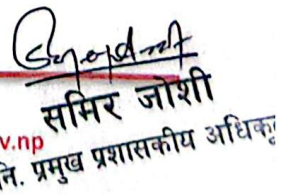 समिर जोशी
v.np
नि. प्रमुख प्रशासकीय अधिकृ